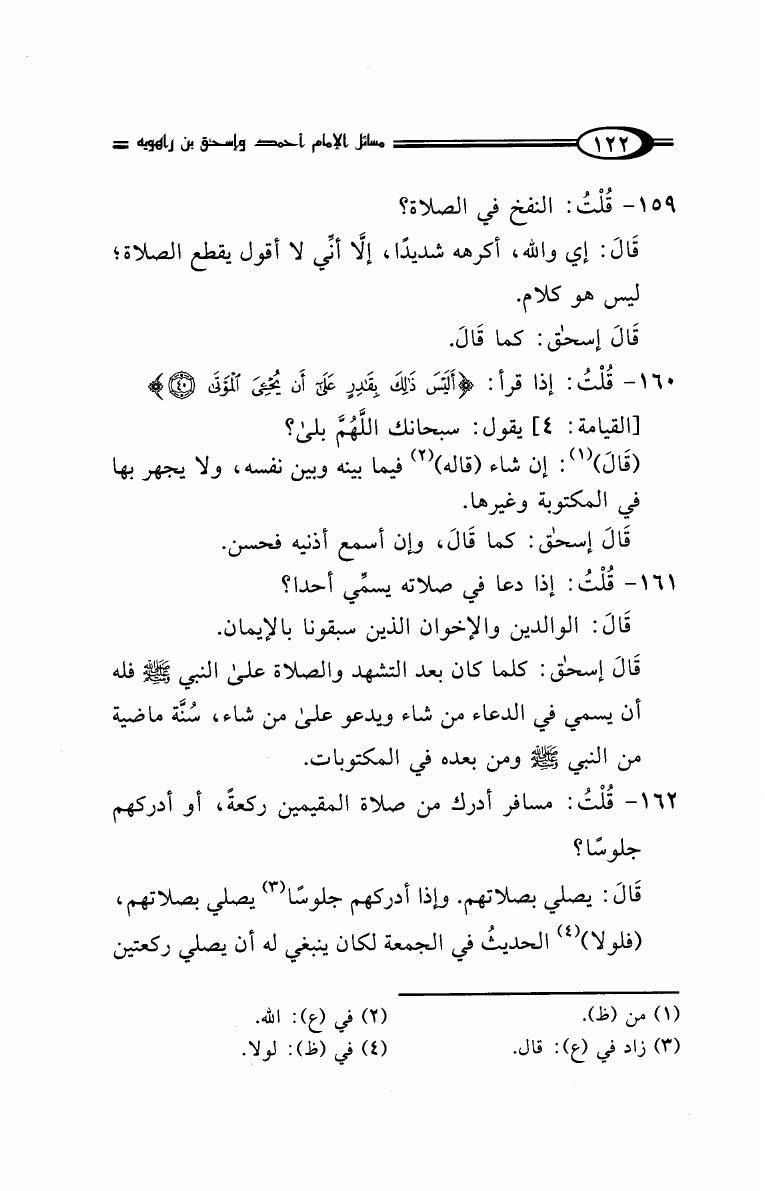 ١٢٢ مسائل الإمام أحمد وإسحاق بن راهويه
١٥٩- قُلْتُ: النفخ في الصلاة؟
قَالَ: إي والله، أكرهه شديدًا، إلَّا أنِّي لا أقول يقطع الصلاة؛
ليس هو كلام.
قَالَ إسحٰق: كما قَالَ.
١٦٠- قُلْتُ: إذا قرأ: ﴿أَلَيْسَ ذَٰلِكَ بِقَٰدِرٍ عَلَىٰٓ أَن يُحْۦِىَ ٱلْمَوْتَىٰ ٤٠﴾
[القيامة: ٤] يقول: سبحانك اللَّهُمَّ بلىٰ؟
(قَالَ)(١): إن شاء (قاله)(٢) فيما بينه وبين نفسه، ولا يجهر بها
في المكتوبة وغيرها.
قَالَ إسحٰق: كما قَالَ، وإن أسمع أذنيه فحسن.
١٦١- قُلْتُ: إذا دعا في صلاته يسمِّي أحدا؟
قَالَ: الوالدين والإخوان الذين سبقونا بالإيمان.
قَالَ إسحٰق: كلما كان بعد التشهد والصلاة علىٰ النبي ﷺ فله
أن يسمي في الدعاء من شاء ويدعو علىٰ من شاء، سُنَّة ماضية
من النبي ﷺ ومن بعده في المكتوبات.
١٦٢- قُلْتُ: مسافر أدرك من صلاة المقيمين ركعةً، أو أدركهم
جلوسًا؟
قَالَ: يصلي بصلاتهم. وإذا أدركهم جلوسًا(٣) يصلي بصلاتهم،
(فلولا)(٤) الحديثُ في الجمعة لكان ينبغي له أن يصلي ركعتين
(١) من (ظ). (٢) في (ع): الله.
(٣) زاد في (ع): قال. (٤) في (ظ): لولا.